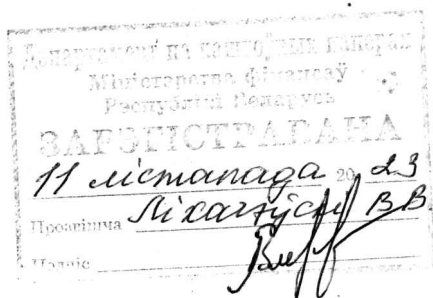 Дэпартамент па каштоўных паперах
Міністэрства фінансаў
Рэспублікі Беларусь
ЗАРЭГІСТРАВАНА
11 лістапада 20 23
Прозвішча В В
Подпіс